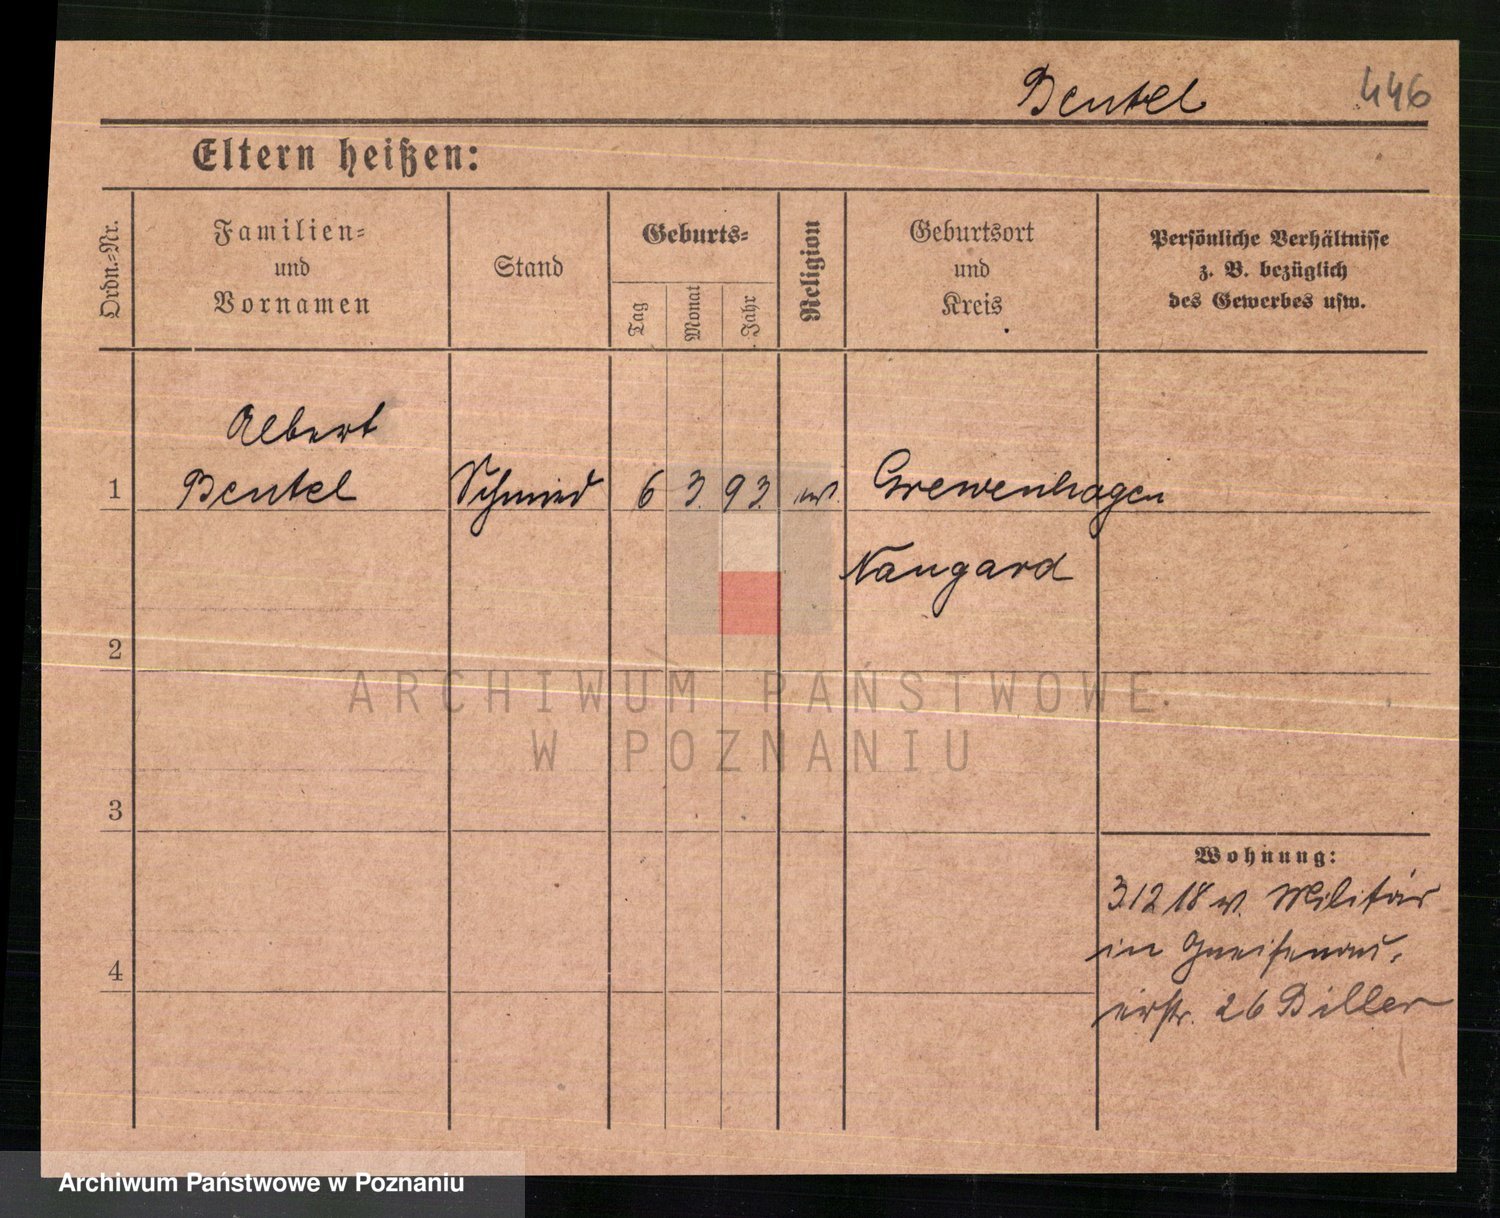 Beutel 446
Eltern heißen:
Ordn.-Nr.
Familien-
und
Vornamen
Stand
Geburts-
Tag
Monat
Jahr
Religion
Geburtsort
und
Kreis
Persönliche Verhältnisse
z. B. bezüglich
des Gewerbes usw.
Albert
1 Beutel Schmied 6 3. 93. Grewenhagen
Naugard
2
3
4
Wohnung:
3.12 18 v. Militär
in Gneisenau,
erstr. 26 Biller
ARCHIWUM PAŃSTWOWE
W POZNANIU
Archiwum Państwowe w Poznaniu